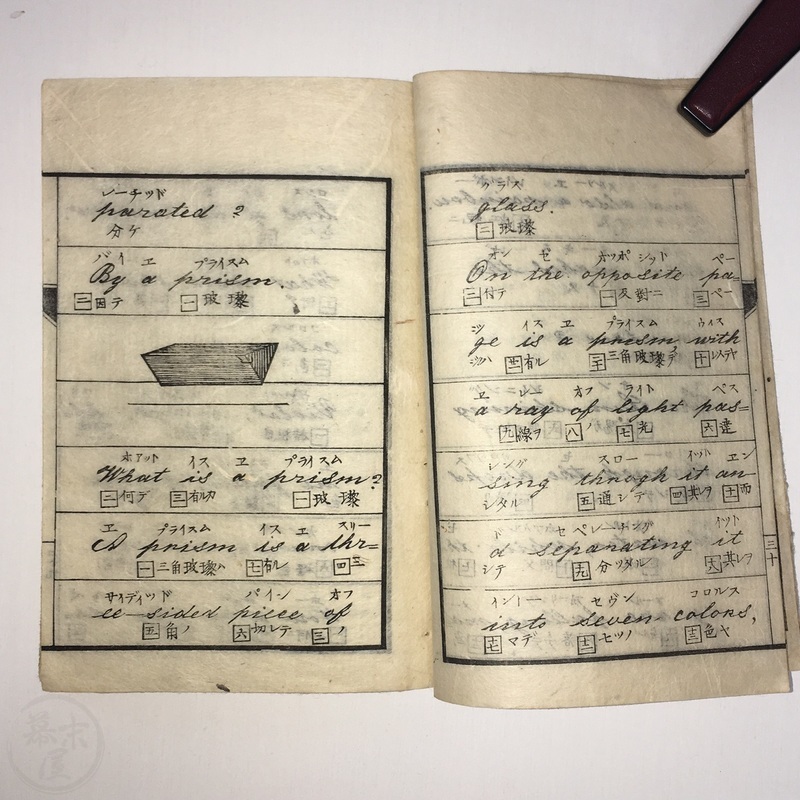 レーチッド
parated ?
分ケ
バイ エ プライスム
By a prism.
二因テ 一玻璨
ホアット イス エ プライスム
What is a prism?
二何デ 三有ルカ 一玻璨
エ プライスム イス エ スリー
A prism is a thr=
一三角玻璨ハ 七有ル 四三
サイディッド パイン オフ
ee-sided piece of
五角ノ 六切レテ 三ノ
グラス
glass.
二玻璨
オン ゼ オッポシッド ペー
On the opposite pa=
二付テ 一反對ニ 三ペー
ジ イス エ プライスム ウィス
ge is a prism with
有ル 三角玻璨
エ レー オフ ライト パス
a ray of light pas=
九線ヲ 八ノ 七光 六達
シング スロー イット エン
sing throgh it an
シタル 五通シデ 四其レヲ 而
ド セペレーチング イット
d separating it
シテ 分ツタル 其レヲ
イントー セヴン コロルス
into seven colors,
マデ 七ツノ 色ヤ
三十
幕末屋